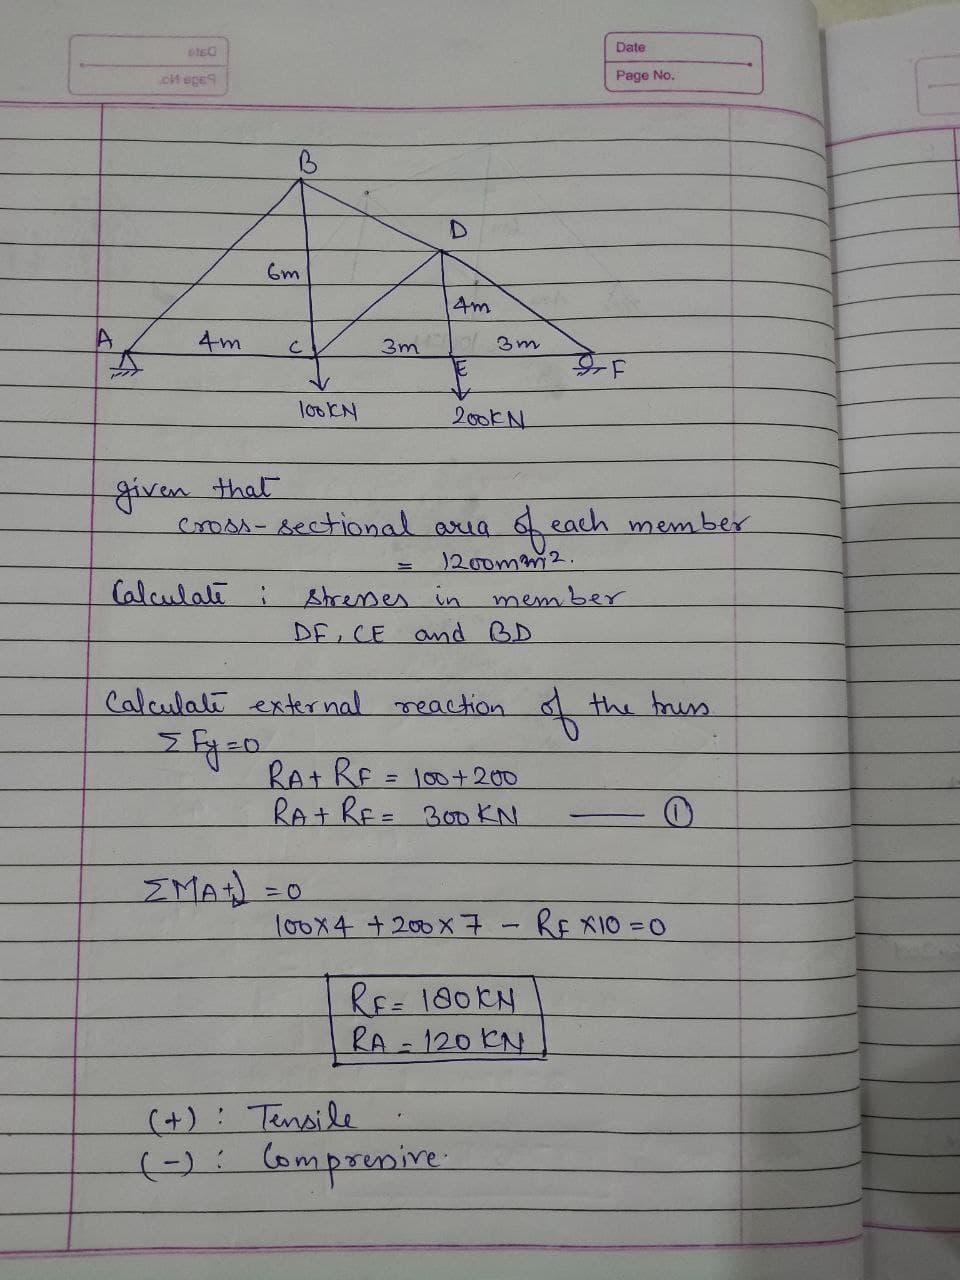 Date
Page No.
B
D
6m
4m
A
4m
C
3m
3m
E
F
100KN
200KN
given that
cross-sectional area of each member
= 1200mm2.
Calculate : stresses in member
DF, CE and BD
Calculate external reaction of the truss
Σ Fy=0
RA+ RF = 100+200
RA+ RF = 300 KN ①
ΣMA+ =0
100x4 +200x7 - RF x10 =0
RF= 180KN
RA = 120 KN
(+) : Tensile
(-) : Compressive.